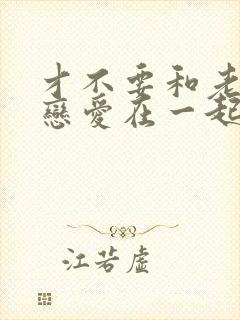 才不要和老
戀愛在一起
江若虛